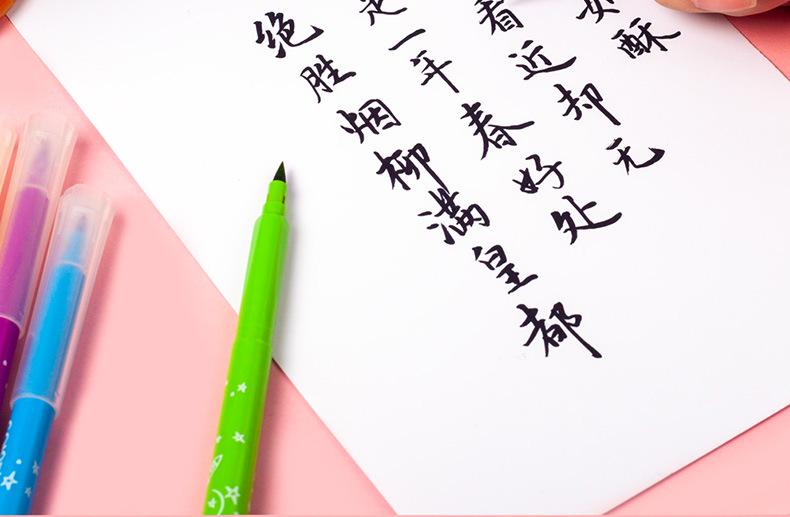 如酥
看近却无
是一年春好处
绝胜烟柳满皇都